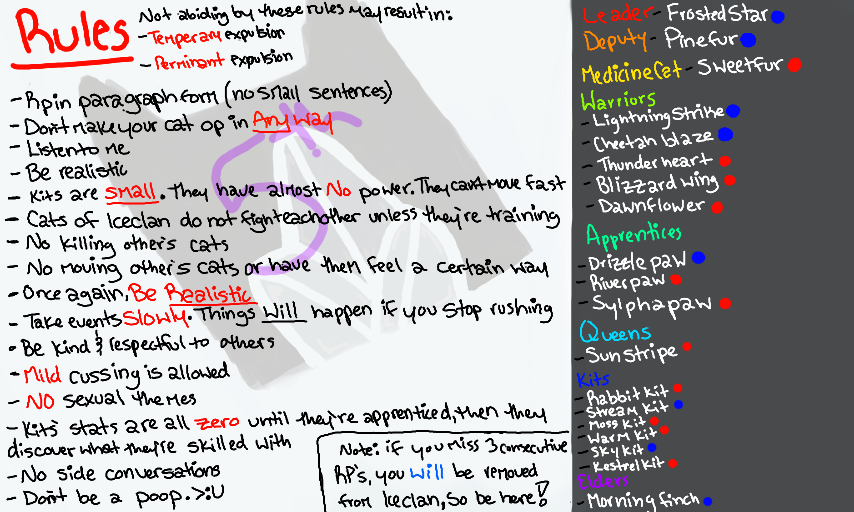 Rules
Not abiding by these rules may result in:
-Temperary expulsion
- Perminant expulsion
-Rp in paragraph form (no small sentences)
- Don't make your cat op in Any Way
- Listen to me
- Be realistic
- Kits are small. They have almost No power. They can't move fast
- Cats of Iceclan do not fight eachother unless they're training
- No killing other's cats
- No moving other's cats or have then feel a certain way
- Once again, Be Realistic
- Take events Slowly. Things Will happen if you stop rushing
- Be kind & respectful to others
- Mild cussing is allowed
- NO sexual themes
- Kits' stats are all zero until they're apprenticed, then they
discover what they're skilled with
- No side conversations
- Don't be a poop. >:U
Note: if you miss 3 consecutive
RP's, you will be removed
from Iceclan, So be here!
Leader- Frosted Star
Deputy- Pinefur
Medicine Cat - Sweetfur
Warriors
- Lightning Strike
- Cheetah blaze
- Thunder heart
- Blizzard wing
- Dawnflower
Apprentices
- Drizzle paw
- River paw
- Sylpha paw
Queens
- Sun stripe
Kits
- Rabbit kit
- Stream kit
- Moss kit
- Warm kit
- Sky kit
- Kestrel kit
Elders
- Morning finch